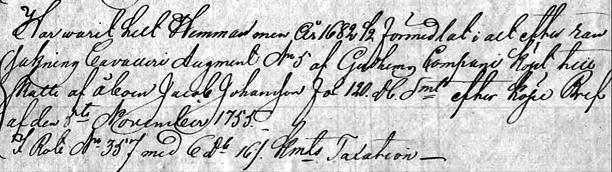 Har warit helt Hemman men År 1682 ½ förmedlat i alt efter ran
sakning Cavaleri Augment No 5 af Compani Köpt till
Skatte af åboen Jacob Johansson för 120 D. Smt efter Köpe Bref
af den 3ie November 1755.
I Rote No 357 med 6 D 16/ Kmts Taxation